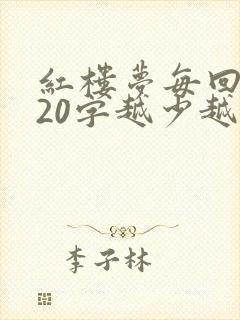 紅樓夢每回
20字越少越
李子林